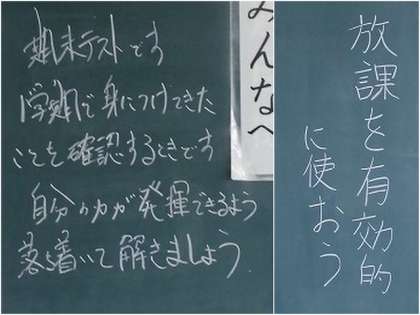 期末テストです
学期で身につけてきた
ことを確認するときです
自分の力が発揮できるよう
落ち着いて解きましょう
みんなへ
放課を有効的
に使おう